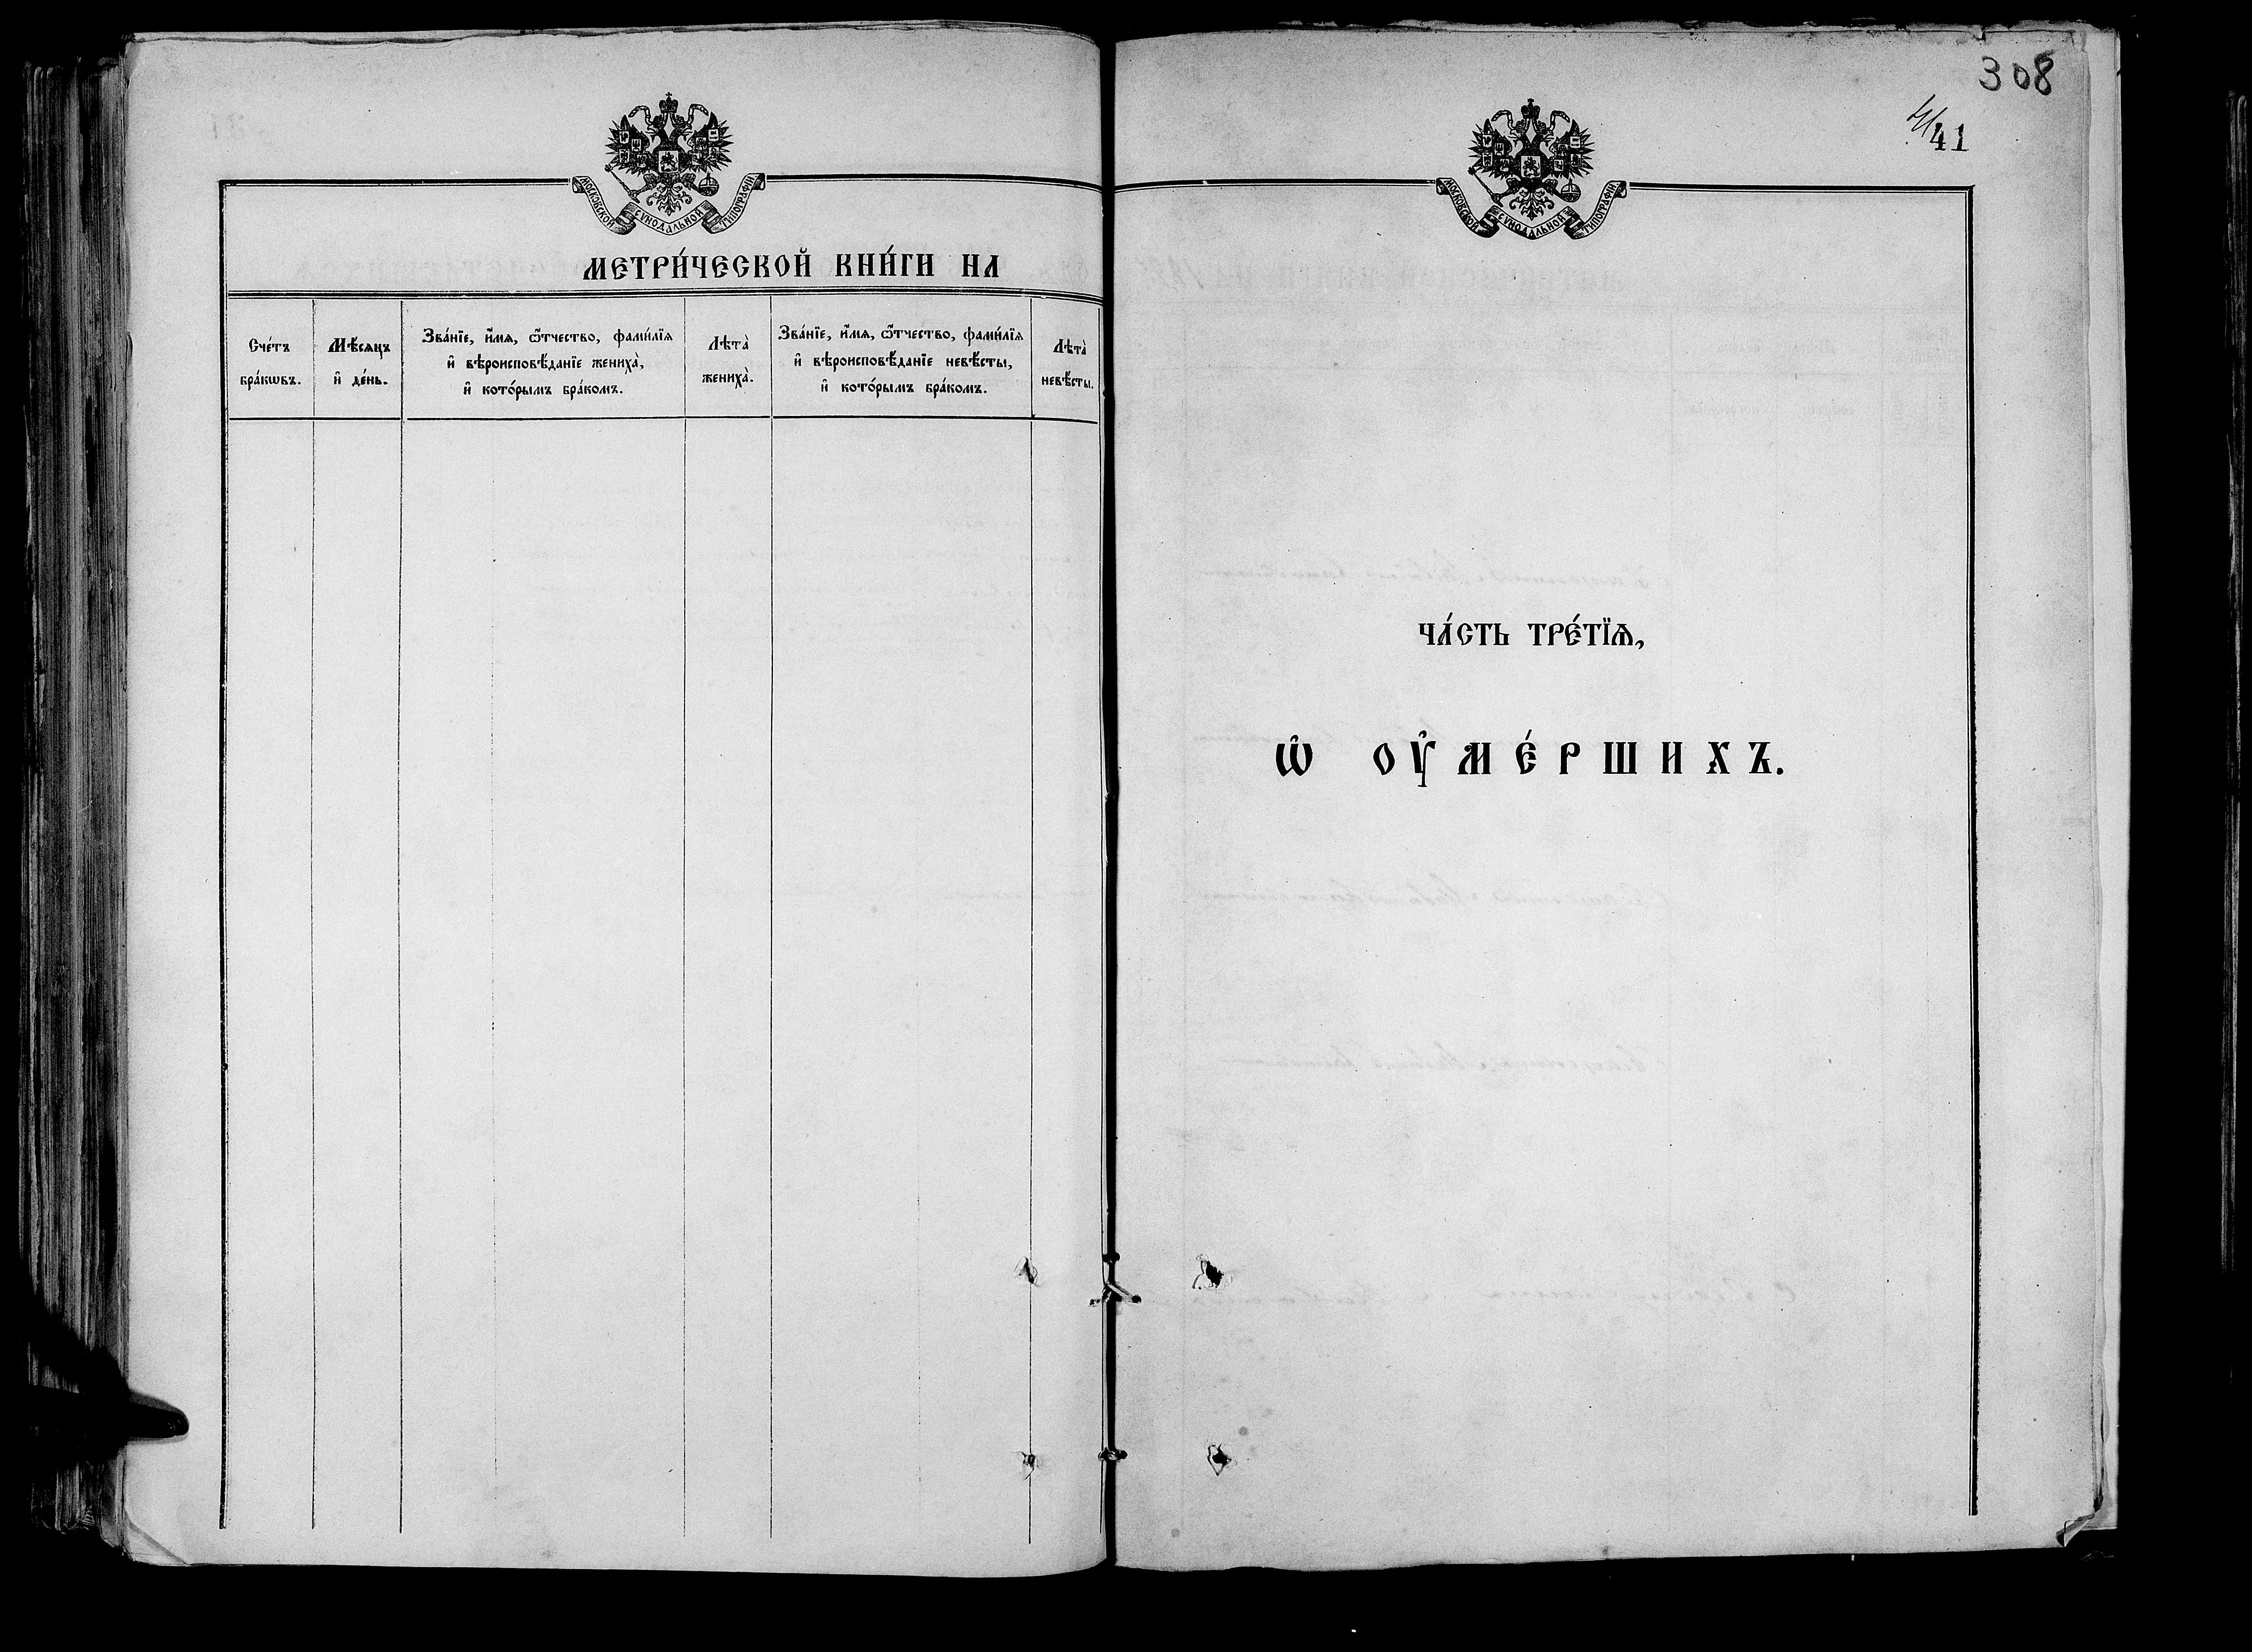 МОСКОВСКОЙ СѴНОДАЛЬНОЙ ТИПОГРАФІИ
МЕТРИ́ЧЕСКОЙ КНИ́ГИ НА
Сче́тъ
бра́кѡвъ.
Мѣ́сяцъ
и҆ де́нь.
Зва́нїе, и҆́мѧ, ѻ҆́тчество, фами́лїѧ
и҆ вѣроисповѣ́данїе жениха̀,
и҆ кото́рымъ бра́комъ.
Лѣта̀
жениха̀.
Зва́нїе, и҆́мѧ, ѻ҆́тчество, фами́лїѧ
и҆ вѣроисповѣ́данїе невѣ́сты,
и҆ кото́рымъ бра́комъ.
Лѣта̀
невѣ́сты.
308
41
41
МОСКОВСКОЙ СѴНОДАЛЬНОЙ ТИПОГРАФІИ
ЧА́СТЬ ТРЕ́ТЇѦ,
Ѡ҆ ОУ҆МЕ́РШИХЪ.